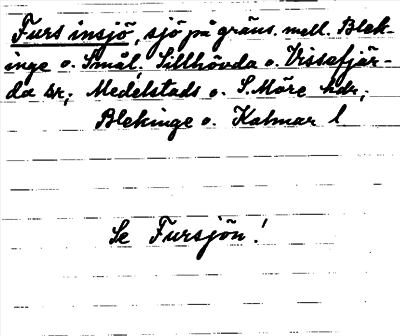 Furs insjö, sjö på gräns. mell. Blek-
inge o. Smål. Sillhövda o. Vissefjär-
da sr; Medelstads o. S. Möre hdr;
Blekinge o. Kalmar l
Se Fursjön!